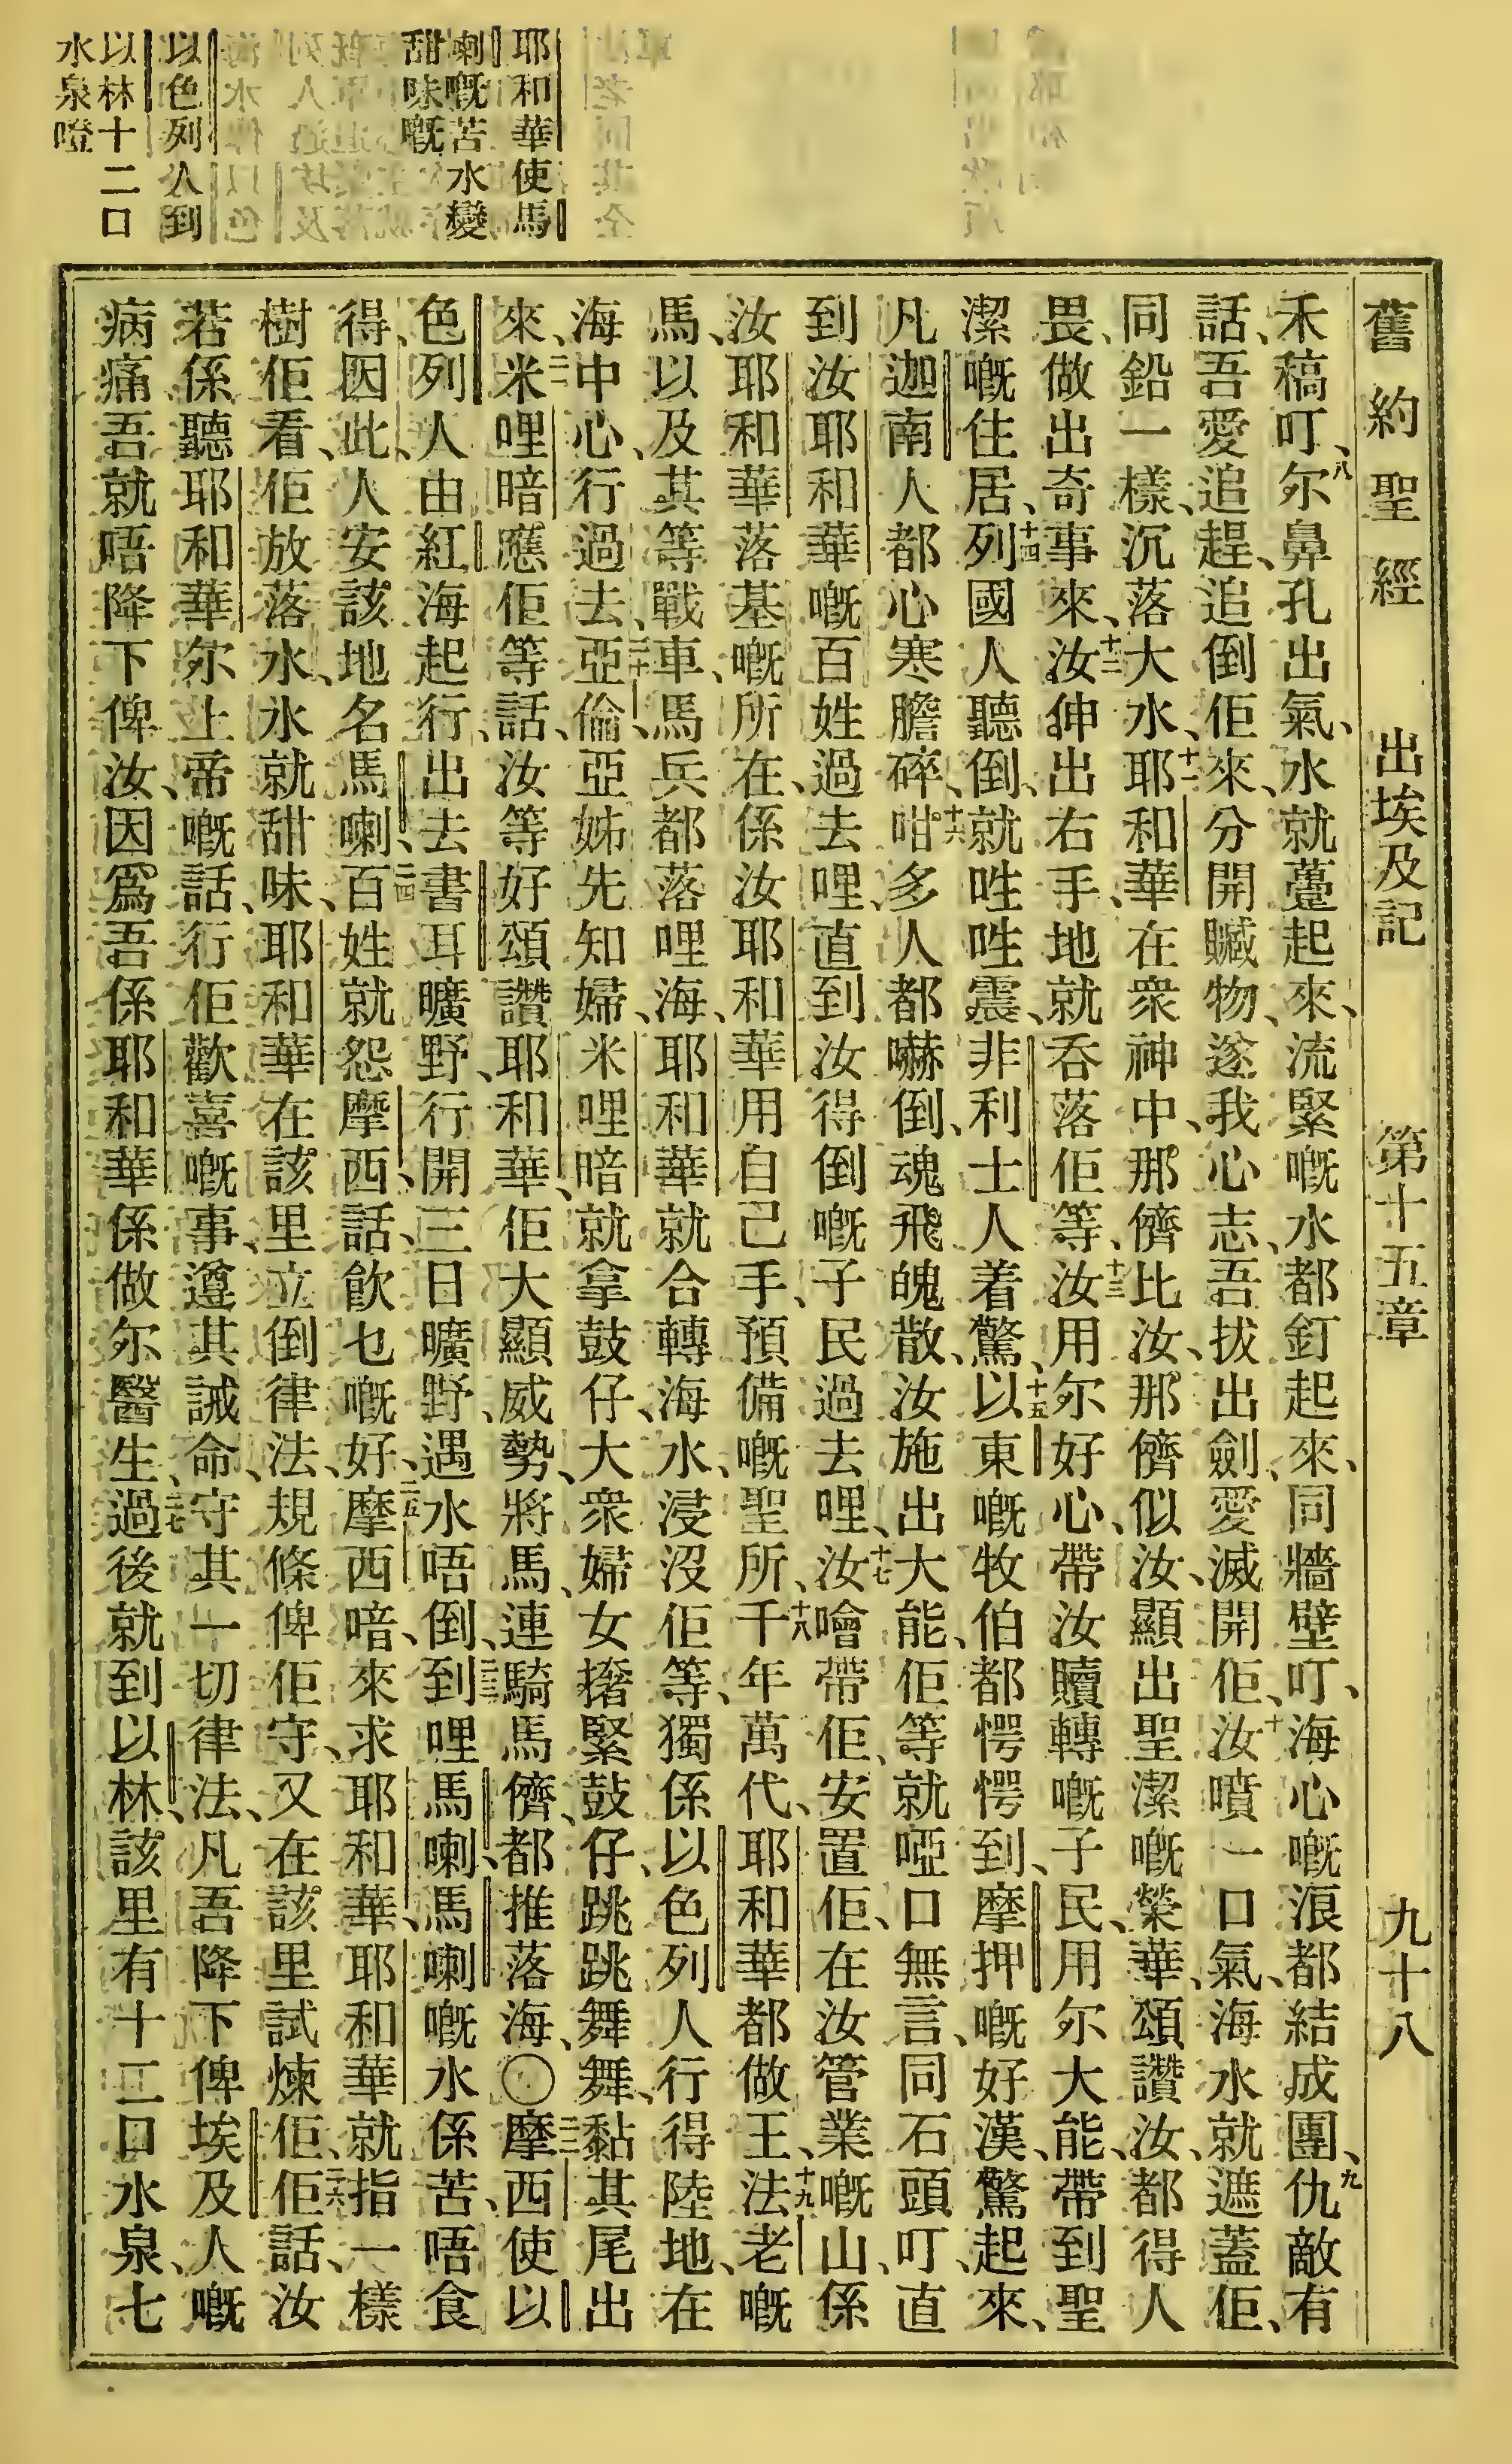 耶和華使馬
喇嘅苦水變
甜味嘅
以色列人到
以林十二口
水泉嶝
舊約聖經 出埃及記 第十五章 九十八
禾稿叮、八尔鼻孔出氣、水就躉起來、流緊嘅水都釘起來、同牆壁叮、海心嘅浪都結成團、九仇敵有
話、吾愛追趕、追倒佢來、分開贓物、遂我心志、吾拔出劍、愛滅開佢、十汝噴一口氣、海水就遮蓋佢、
同鉛一樣、沉落大水、十一耶和華在衆神中、那儕比汝、那儕似汝、顯出聖潔嘅榮華、頌讚汝、都得人
畏、做出奇事來、十二汝伸出右手、地就呑落佢等、十三汝用尔好心、帶汝贖轉嘅子民、用尔大能、帶到聖
潔嘅住居、十四列國人聽倒、就震、非利士人着驚、十五以東嘅牧伯都愕愕到、摩押嘅好漢驚起來、
凡迦南人都心寒膽碎、十六咁多人都嚇倒、魂飛魄散、汝施出大能、佢等就啞口無言、同石頭叮、直
到汝耶和華嘅百姓過去哩、直到汝得倒嘅子民過去哩、十七汝噲帶佢、安置佢、在汝管業嘅山、係
汝耶和華落基嘅所在、係汝耶和華用自己手、預備嘅聖所、十八千年萬代、耶和華都做王、十九法老嘅
馬、以及其等戰車、馬兵都落哩海、耶和華就合轉海水、浸沒佢等、獨係以色列人行得陸地、在
海中心、行過去、二十亞倫、亞姊先知婦、米哩暗就拿鼓仔、大衆婦女緊鼓仔、跳跳舞舞、黏其尾出
來、二一米哩暗應佢等話、汝等好頌讚耶和華、佢大顯威勢、將馬、連騎馬儕、都推落海、〇二二摩西使以
色列人由紅海起行、出去書耳曠野、行開三日曠野、遇水唔倒、二三到哩馬喇、馬喇嘅水係苦、唔食
得、因此、人安該地名馬喇、二四百姓就怨摩西、話、飲乜嘅好、二五摩西喑來求耶和華、耶和華就指一樣
樹佢看、佢放落水、水就甜味、耶和華在該里立倒律法、規條俾佢守、又在該里試煉佢、二六佢話、汝
若係聽耶和華尔上帝嘅話、行佢歡喜嘅事、遵其誡命、守其一切律法、凡吾降下俾埃及人嘅
病痛、吾就唔降下俾汝、因爲吾係耶和華、係做尔醫生、二七過後就到以林、該里有十二口水泉、七